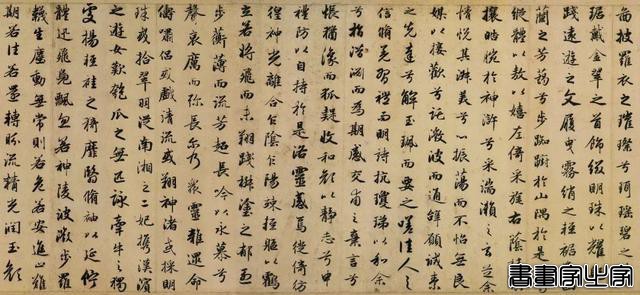 披羅衣之璀璨兮珥瑤碧之
琚戴金翠之首飾綴明珠以耀
踐遠遊之文履曳霧綃之輕裾
蘭之芳藹兮步踟躕於山隅於是
縱體以敖以嬉左倚采旄右蔭
攘皓腕於神滸兮采湍瀨之玄芝余
情悅其淑美兮心振蕩而不怡無良
媒以接歡兮託微波而通辭願誠素
之先達兮解玉珮而要之嗟佳人之
信脩羌習禮而明詩抗瓊珶以和余
兮指潛淵而為期感交甫之棄言兮
悵猶豫而狐疑收和顏以靜志兮申
禮防以自持於是洛靈感焉徙倚彷
徨神光離合乍陰乍陽竦輕軀以鶴
立若將飛而未翔踐椒塗之郁烈
步蘅薄而流芳超長吟以永慕兮
聲哀厲而彌長爾乃衆靈雜遝命
儔嘯侶或戲清流或翔神渚或採明
珠或拾翠羽從南湘之二妃攜漢濱
之遊女歎匏瓜之無匹詠牽牛之獨
處揚輕袿之猗靡翳脩袖以延佇
體迅飛鳧飄忽若神陵波微步羅
襪生塵動無常則若危若安進止難
期若往若還轉眄流精光潤玉顏
書畫家出字